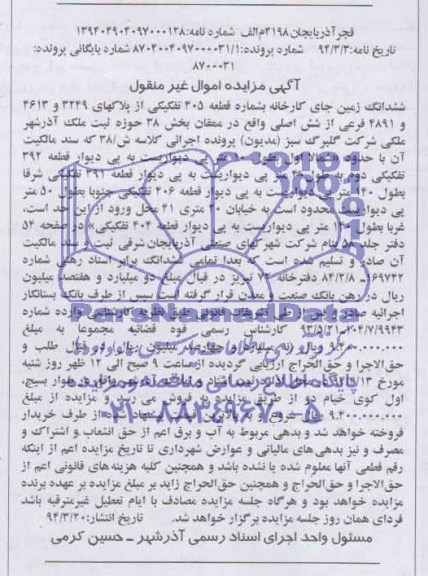 فجر آذربایجان ۴۱۹۸/م الف شماره نامه: ۱۳۹۴۰۴۹۰۳۰۹۷۰۰۰۱۲۸
تاریخ نامه: ۹۴/۳/۳ شماره پرونده: ۸۷۰۴۰۰۴۰۹۷۰۰۰۰۳۱/۱ شماره بایگانی پرونده:
۸۷۰۰۰۳۱
آگهی مزایده اموال غیر منقول
ششدانگ زمین جای کارخانه بشماره قطعه ۴۰۵ تفکیکی از پلاکهای ۳۲۴۹ و ۴۶۱۳
و ۴۸۹۱ فرعی از شش اصلی واقع در ممقان بخش ۳۸ حوزه ثبت ملک آذرشهر
ملکی شرکت گلبرگ سبز (مدیون) پرونده اجرائی کلاسه ش/۳۸ که سند مالکیت
آن با حدود شمالا بطول متر پی دیواریست به پی دیوار قطعه ۳۹۲
تفکیکی دوم بطول متر پی دیواریست به پی دیوار قطعه ۳۹۱ تفکیکی شرقا
بطول متر پی دیواریست به پی دیوار قطعه ۴۰۶ تفکیکی جنوبا بطول ۵۰ متر
پی دیواریست محدود است به خیابان متری ۴۱ محل ورود از این حد است،
غربا بطول متر پی دیواریست به پی دیوار قطعه ۴۰۴ تفکیکی» در صفحه ۵۴
دفتر جلد بنام شرکت شهرکهای صنعتی آذربایجان شرقی ثبت و سند مالکیت
آن صادر و تسلیم شده است که بعدا تمامی ششدانگ برابر اسناد رهنی شماره
۶۹۷۴۲ ـ ۸۴/۳/۸ دفترخانه ۷۳ تبریز در قبال مبلغ دو میلیارد و هفتصد میلیون
ریال در رهن بانک صنعت و معدن قرار گرفته است سپس از طرف بانک بستانکار
اجرائیه صادر تشریفات قانونی طبق نظریه کارشناسی وارده شماره
۱۰۴/۷/۹۹۴۳ ـ ۹۳/۵/۲۱ کارشناس رسمی قوه قضائیه مجموعا به مبلغ
۹.۴۰۰.۰۰۰.۰۰۰ ریال (نه میلیارد و چهارصد میلیون ریال) در قبال طلب و
حق‌الاجرا و حق‌الحراج ارزیابی گردیده از ساعت ۹ صبح الی ۱۲ ظهر روز شنبه
مورخ در محل اداره ثبت اسناد و املاک بلوار بسیج،
اول کوی خیام دو از طریق مزایده به فروش می‌رسد و مزایده از مبلغ
۹.۴۰۰.۰۰۰.۰۰۰ شروع و به از طرف خریدار
فروخته خواهد شد و بدهی مربوط به آب و برق اعم از حق انشعاب و اشتراک و
مصرف و نیز بدهی‌های مالیاتی و عوارض شهرداری تا تاریخ مزایده اعم از اینکه
رقم قطعی آنها معلوم شده یا نشده باشد و همچنین کلیه هزینه‌های قانونی اعم از
حق‌الاجرا و حق‌الحراج و همچنین حق‌الحراج زاید بر مبلغ مزایده بر عهده برنده
مزایده خواهد بود و هرگاه جلسه مزایده مصادف با ایام تعطیل غیرمترقبه باشد
فردای همان روز جلسه مزایده برگزار خواهد شد. تاریخ انتشار: ۹۴/۳/۲۰
مسئول واحد اجرای اسناد رسمی آذرشهر ـ حسین کرمی
ParsNamadData
پایگاه اطلاع رسانی مناقصه و مزایده
۰۲۱-۸۸۳۴۹۶۷۰-۵